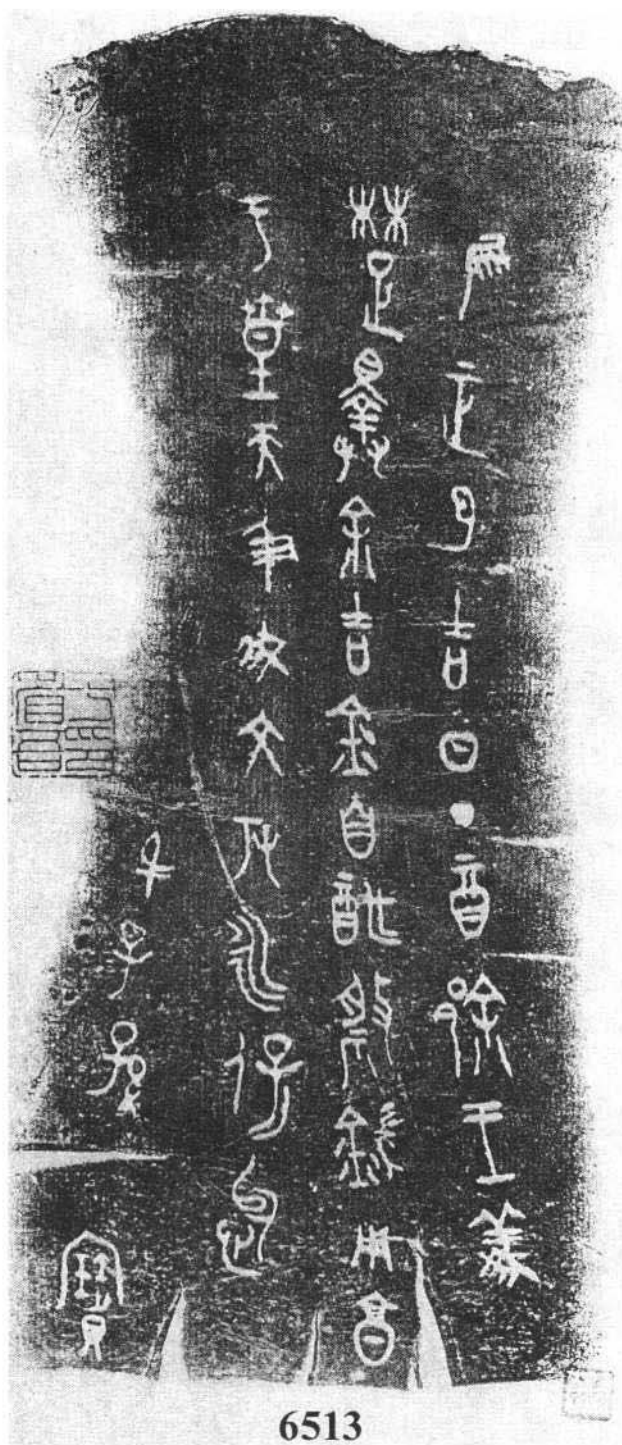 隹正月吉日丁酉䣄王義
楚擇余吉金自酢祭鍴用亯
于皇天及我文考永保怠
身子孫寶
6513